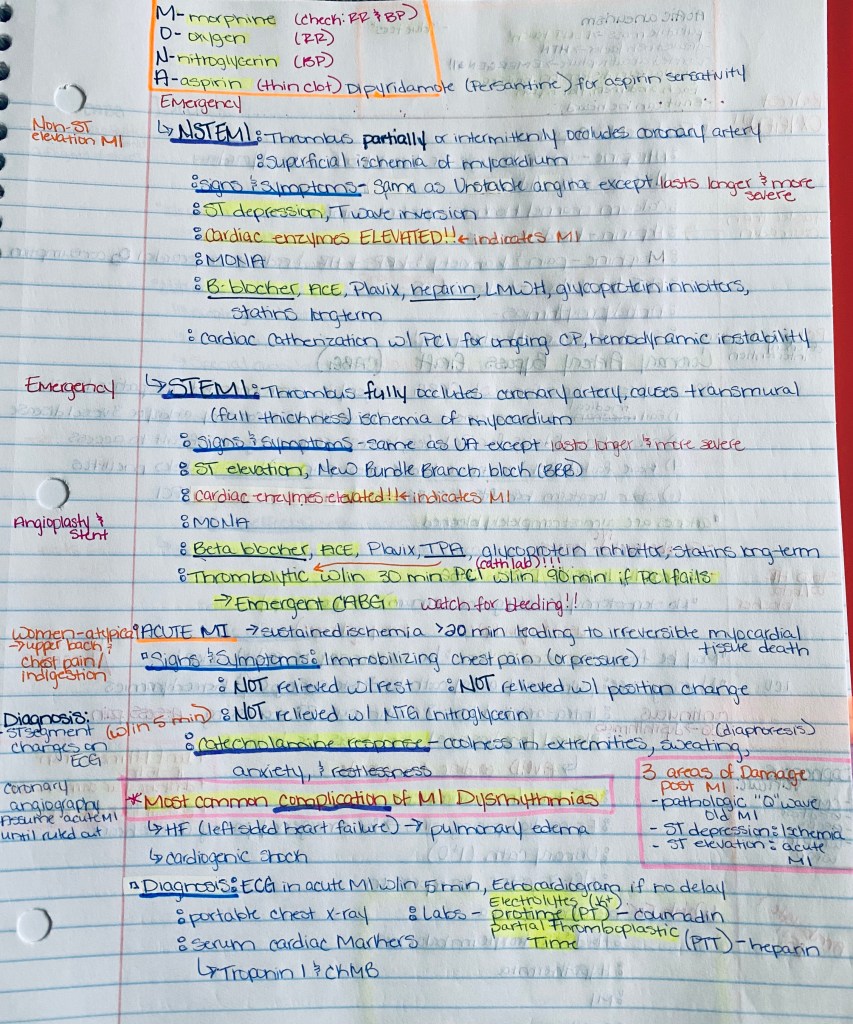 M- morphine (check: RR & BP)
O- oxygen (RR)
N- nitroglycerin (BP)
A- aspirin (thin clot) Dipyridamole (Persantine) for aspirin sensativity
Emergency
Non-ST
elevation MI
↳ NSTEMI: Thrombus partially or intermittenly occludes coronary artery
superficial ischemia of myocardium
signs & symptoms - same as Unstable angina except lasts longer & more
severe
ST depression, T wave inversion
cardiac enzymes ELEVATED!! ← indicates MI
MONA
B-blocher, ACE, Plavix, heparin, LMWH, glycoprotein inhibitors,
statins longterm
cardiac catherization w/ PCI for ongoing CP, hemodynamic instability
Emergency
↳ STEMI: Thrombus fully occludes coronary artery, causes transmural
(full thichness) ischemia of myocardium
signs & symptoms - same as UA except lasts longer & more severe
ST elevation, New Bundle Branch bloch (BBB)
cardiac enzymes elevated!! ← indicates MI
Angioplasty &
stent
MONA
Beta blocher, ACE, Plavix, TPA, glycoprotein inhibitor, statins long-term
(cath lab)!!!
Thrombolytic w/in 30 min PCI w/in 90 min if PCI fails
→ Emergent CABG watch for bleeding!!
women-atypical
→ upper bach &
chest pain/
indigestion
ACUTE MI → sustained ischemia >20 min leading to irreversible myocardial
tissue death
Signs & Symptoms: Immobilizing chest pain (or pressure)
NOT relieved w/ rest NOT relieved w/ position change
Diagnosis:
- ST segment (w/in 5 min)
changes on
ECG
NOT relieved w/ NTG (nitroglycerin
(diaphoresis)
catecholamine response - coolness in extremities, sweating,
anxiety, & restlessness
coronary
angiography
Assume acute MI
until ruled out
*Most common complication of MI Dysrhythmias
↳ HF (left sided heart failure) → pulmonary edema
↳ cardiogenic shoch
3 areas of Damage
post MI
- pathologic "Q" wave
old MI
- ST depression: Ischemia
- ST elevation: acute
MI
Diagnosis: ECG in acute MI w/in 5 min, Echocardiogram if no delay
portable chest x-ray Labs - Electrolytes (K+)
protime (PT) - coumadin
partial thromboplastic
Time (PTT) - heparin
serum cardiac Markers
↳ Troponin I & CKMB